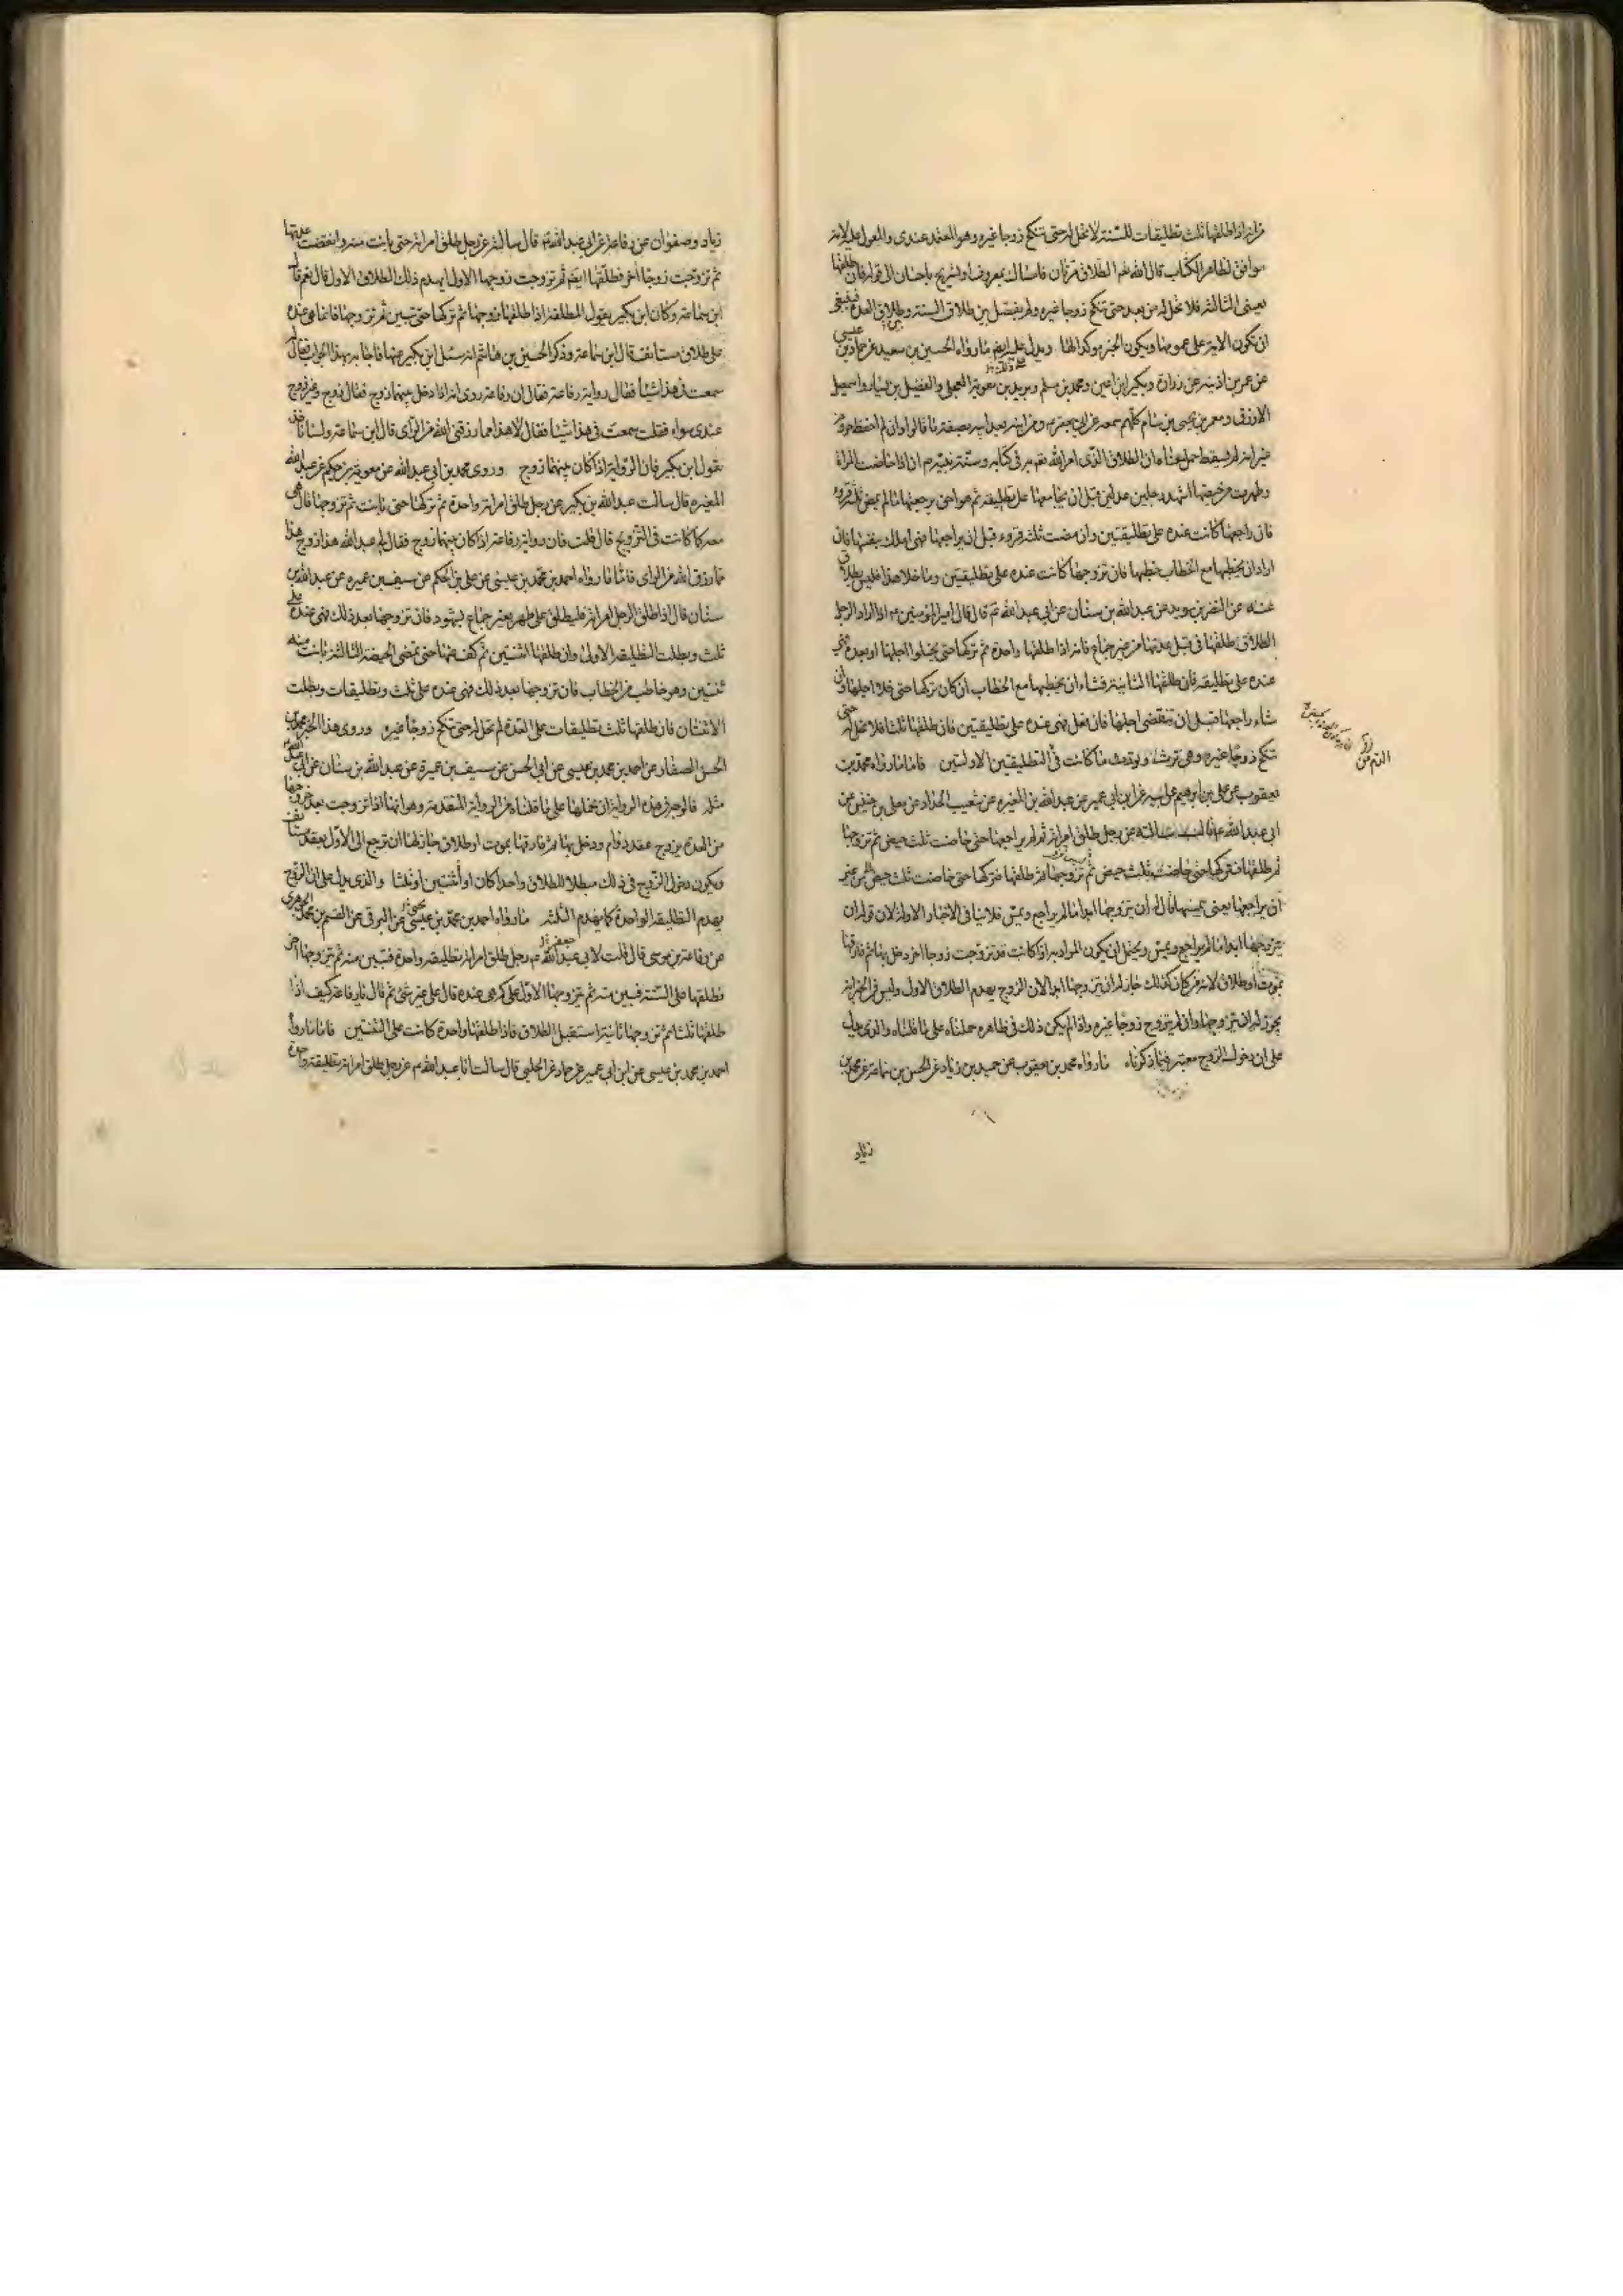 من انه اذا طلقها ثلث تطليقات للسنة لا تحل له حتى تنكح زوجا غيره وهو المعتمد عندى والمعول عليه لانه
موافق لظاهر الكتاب قال الله تعم الطلاق مرتان فامساك بمعروف او تسريح باحسان الى قوله فان طلقها
يعنى الثالثة فلا تحل له من بعد حتى تنكح زوجا غيره ولم يفصل بين طلاق السنة وطلاق العدة فينبغى
ان تكون الاية على عمومها ويكون الخبر موكدا لها ويدل عليه ايضم ما رواه الحسين بن سعيد عن حماد بن عيسى
عن عمر بن اذينه عن زرارة وبكير ابنى اعين ومحمد بن مسلم وبريد بن معوية العجلى والفضيل بن يسار واسمعيل
الازرق ومعمر بن يحيى بن بسام كلهم سمعه عن ابى جعفر ومن ابنه بعد ابيه بصفة ما قالوا وان لم احفظ حروفه
غير انه لم يسقط جمل معناه ان الطلاق الذى امر الله تعم به فى كتابه وسنة نبيه ص انه اذا حاضت المراة
وطهرت من حيضها اشهد رجلين عدلين قبل ان يجامعها على تطليقه ثم هو احق برجعتها ما لم يمض ثلثة قروء
فان راجعها كانت عنده على تطليقتين وان مضت ثلثة قروء قبل ان يراجعها فهى املك بنفسها فان
اراد ان يخطبها مع الخطاب خطبها فان تزوجها كانت عنده على تطليقتين وما خلا هذا فليس بطلاق
عنه عن النضر بن سويد عن عبدالله بن سنان عن ابى عبد الله ع قال قال امير المؤمنين ع اذا اراد الرجل
الطلاق طلقها فى قبل عدتها من غير جماع فانه اذا طلقها واحدة ثم تركها حتى يخلوا اجلها او بعده فهى
عنده على تطليقه فان طلقها الثانية فشاء ان يخطبها مع الخطاب ان كان تركها حتى خلا اجلها وان
شاء راجعها قبل ان تنقضى اجلها فان فعل فهى عنده على تطليقتين فان طلقها ثلثا فلا تحل له حتى
تنكح زوجا غيره وهى ترث وتورث ما كانت فى التطليقتين الاولتين فاما ما رواه محمد بن
يعقوب عن على بن ابرهيم عن ابيه عن ابن ابى عمير عن عبد الله بن المغيره عن شعيب الحداد عن معلى بن خنيس عن
ابى عبد الله ع قال سالته عن رجل طلق امراته ثم لم يراجعها حتى حاضت ثلث حيض ثم تزوجها
ثم طلقها فتركها حتى حاضت ثلث حيض ثم تزوجها ثم طلقها فتركها حتى حاضت ثلث حيض من غير
ان يراجعها يعنى يمسها قال له ان يتزوجها ابدا ما لم يراجع ويمس فلا ينافى الاخبار الاولة لان قوله ان
يتزوجها ابدا ما لم يراجع ويمس يحتمل ان يكون المراد به اذا كانت قد تزوجت زوجا اخر دخل بها ثم فارقها
بموت او طلاق لانه من كان كذلك جاز له ان يتزوجها ابدا لان الزوج يهدم الطلاق الاول وليس فى الخبر انه
يجوز له ان يتزوجها وان لم يتزوج زوجا غيره واذا لم يكن ذلك فى ظاهره حملناه على ما قلناه والذى يدل
على ان دخول الزوج معتبر فيما ذكرناه ما رواه محمد بن يعقوب عن حميد بن زياد عن الحسن بن سماعة عن محمد بن
زياد
زياد وصفوان عن رفاعة عن ابى عبد الله ع قال سالته عن رجل طلق امراته حتى بانت منه وانقضت عدتها
ثم تزوجت زوجا آخر فطلقها ايضم ثم تزوجت زوجها الاول ايهدم ذلك الطلاق الاول قال نعم قال
ابن سماعة وكان ابن بكير يقول المطلقة اذا طلقها زوجها ثم تركها حتى تبين ثم تزوجها فانما هى عنده
على طلاق مستانف قال ابن سماعة وذكر الحسين بن هاشم انه سئل ابن بكير عنها فاجابه بهذا الجواب فقال له
سمعت فى هذا شيئا فقال رواية رفاعة فقال ان رفاعة روى انه اذا دخل بينهما زوج فقال زوج وغير زوج
عندى سواء فقلت سمعت فى هذا شيئا فقال لا هذا مما رزق الله من الراى قال ابن سماعة وليس احد
يقول بقول ابن بكير فان الرواية اذا كان بينهما زوج وروى محمد بن ابى عبد الله عن معوية بن حكيم عن عبد الله
المغيره قال سالت عبد الله بن بكير عن رجل طلق امراته واحدة ثم تركها حتى بانت ثم تزوجها قال هى
معه كما كانت فى التزويج قال قلت فان رواية رفاعة اذا كان بينهما زوج فقال لى عبد الله هذا زوج هذا
مما رزق الله من الراى فاما ما رواه احمد بن محمد بن عيسى عن على بن الحكم عن سيف بن عميره عن عبد الله بن
سنان قال اذا طلق الرجل امراته فليطلق على طهر بغير جماع بشهود فان تزوجها بعد ذلك فهى عنده على
ثلث وبطلت التطليقة الاولى وان طلقها اثنتين ثم كف عنها حتى تمضى الحيضة الثالثة بانت منه
ثنتين وهو خاطب من الخطاب فان تزوجها بعد ذلك فهى عنده على ثلث وتطليقات وبطلت
الاثنتان فان طلقها ثلث تطليقات على العدة لم تحل له حتى تنكح زوجا غيره وروى هذا الخبر محمد بن
الحسن الصفار عن احمد بن محمد بن عيسى عن ابى الحسن عن سيف بن عميرة عن عبد الله بن سنان عن ابى عبد الله
مثله فالوجه فى هذه الرواية ان نحملها على ما قلناه من الرواية المتقدمة وهو انها اذا تزوجت بعد خروجها
من العدة بزوج عقد دوام ودخل بها ثم فارقها بموت او طلاق جاز لها ان ترجع الى الاول بعقد مستانف
ويكون دخول الزوج فى ذلك مبطلا للطلاق واحدا كان او اثنتين او ثلثا والذى يدل على ان الزوج
يهدم التطليقة الواحدة كما يهدم الثلثة ما رواه احمد بن محمد بن عيسى عن البرقى عن القسم بن محمد الجوهرى
عن رفاعة بن موسى قال قلت لابى عبد الله ع رجل طلق امراته تطليقة واحدة فتبين منه ثم تزوجها آخر
فطلقها على السنة فتبين منه ثم تزوجها الاول على كم هى عنده قال على غير شئ ثم قال يا رفاعة كيف اذا
طلقها ثلثا ثم تزوجها ثانية استقبل الطلاق فاذا طلقها واحدة كانت على اثنتين فاما ما رواه
احمد بن محمد بن عيسى عن ابن ابى عمير عن حماد عن الحلبى قال سالت ابا عبد الله ع عن رجل طلق امراته تطليقة واحدة